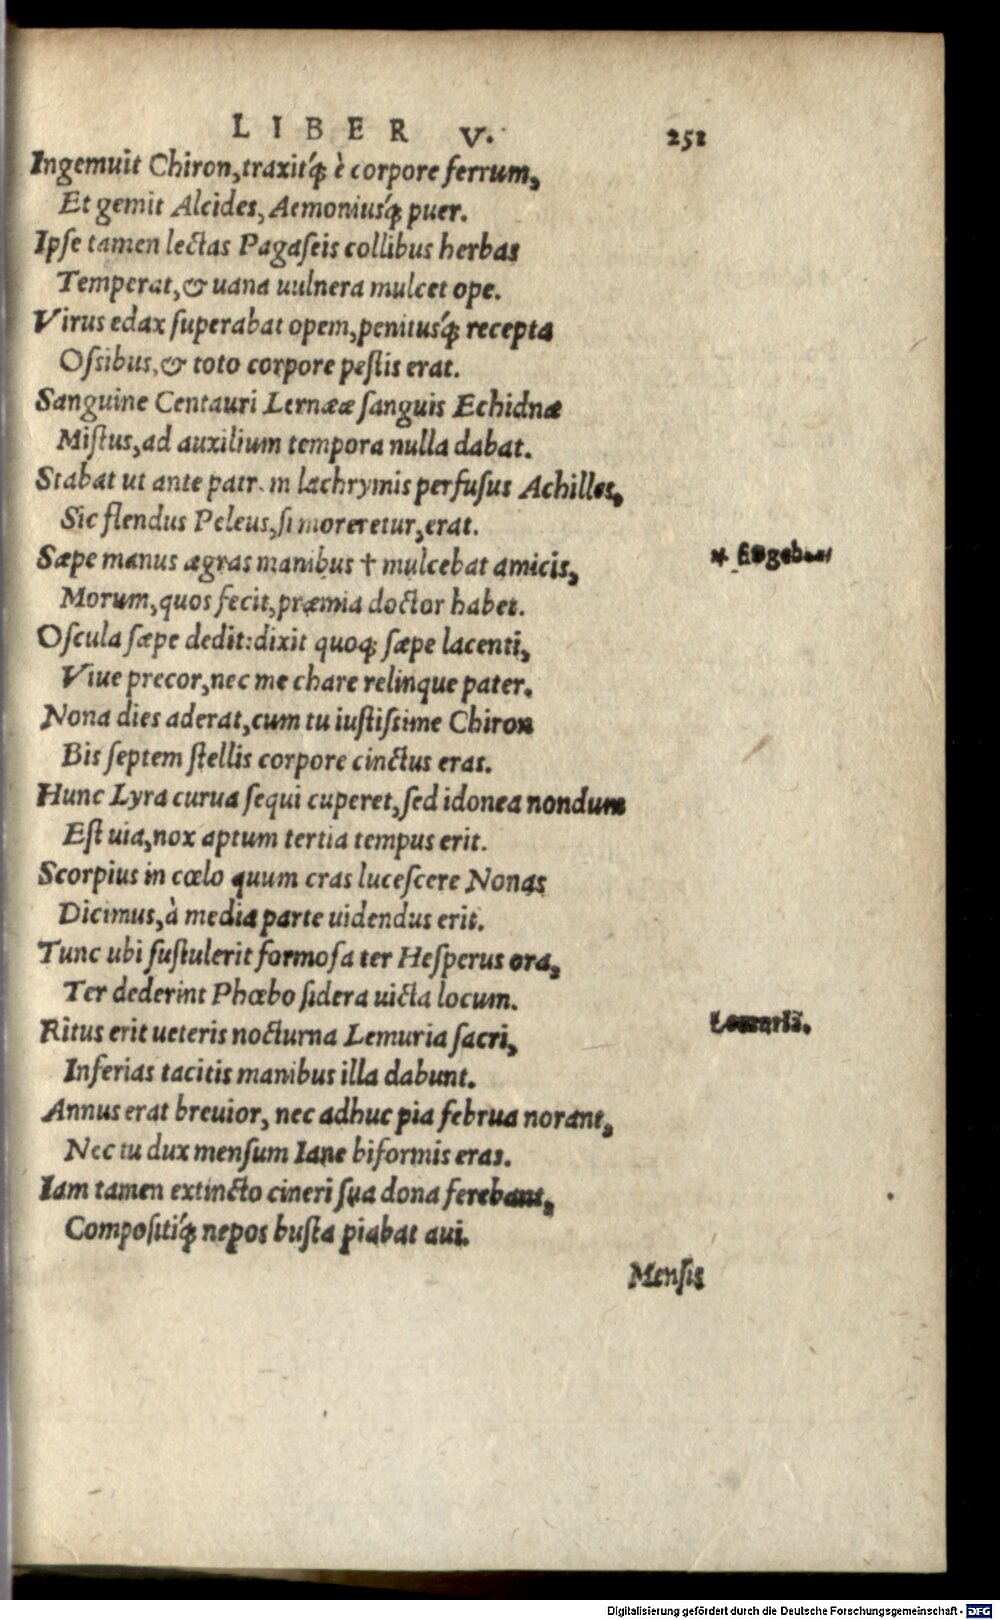 LIBER V. 251
Ingemuit Chiron, traxitq́; è corpore ferrum,
Et gemit Alcides, Aemoniusq́; puer.
Ipſe tamen lectas Pagaſeis collibus herbas
Temperat, & uana uulnera mulcet ope.
Virus edax ſuperabat opem, penitusq́; recepta
Oſsibus, & toto corpore peſtis erat.
Sanguine Centauri Lernææ ſanguis Echidnæ
Miſtus, ad auxilium tempora nulla dabat.
Stabat ut ante patr m lachrymis perfuſus Achilles,
Sic flendus Peleus, ſi moreretur, erat.
Sæpe manus ægras manibus † mulcebat amicis,
Morum, quos fecit, præmia doctor habet.
Oſcula ſæpe dedit: dixit quoq; ſæpe iacenti,
Viue precor, nec me chare relinque pater.
Nona dies aderat, cum tu iuſtiſsime Chiron
Bis ſeptem ſtellis corpore cinctus eras.
Hunc Lyra curua ſequi cuperet, ſed idonea nondum
Eſt uia, nox aptum tertia tempus erit.
Scorpius in cœlo quum cras luceſcere Nonas
Dicimus, à media parte uidendus erit.
Tunc ubi ſuſtulerit formoſa ter Heſperus ora,
Ter dederint Phœbo ſidera uicta locum.
Ritus erit ueteris nocturna Lemuria ſacri,
Lemuria.
Inferias tacitis manibus illa dabunt.
Annus erat breuior, nec adhuc pia februa norant,
Nec tu dux menſum Iane biformis eras.
Iam tamen extincto cineri ſua dona ferebant,
Compoſitiq́; nepos buſta piabat aui.
Menſis
Digitalisierung gefördert durch die Deutsche Forschungsgemeinschaft - DFG